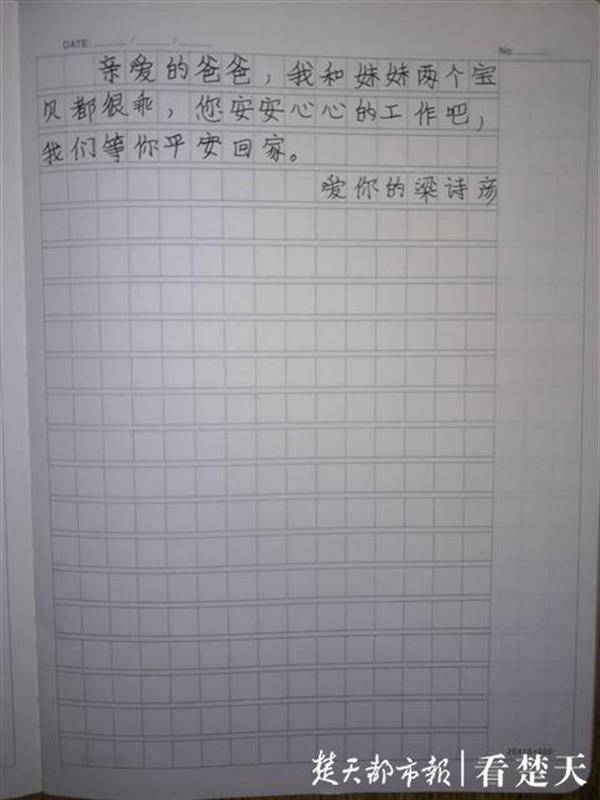 DATE: / /
No.
亲爱的爸爸，我和妹妹两个宝
贝都很乖，您安安心心的工作吧，
我们等你平安回家。
爱你的梁诗彦
楚天都市報|看楚天